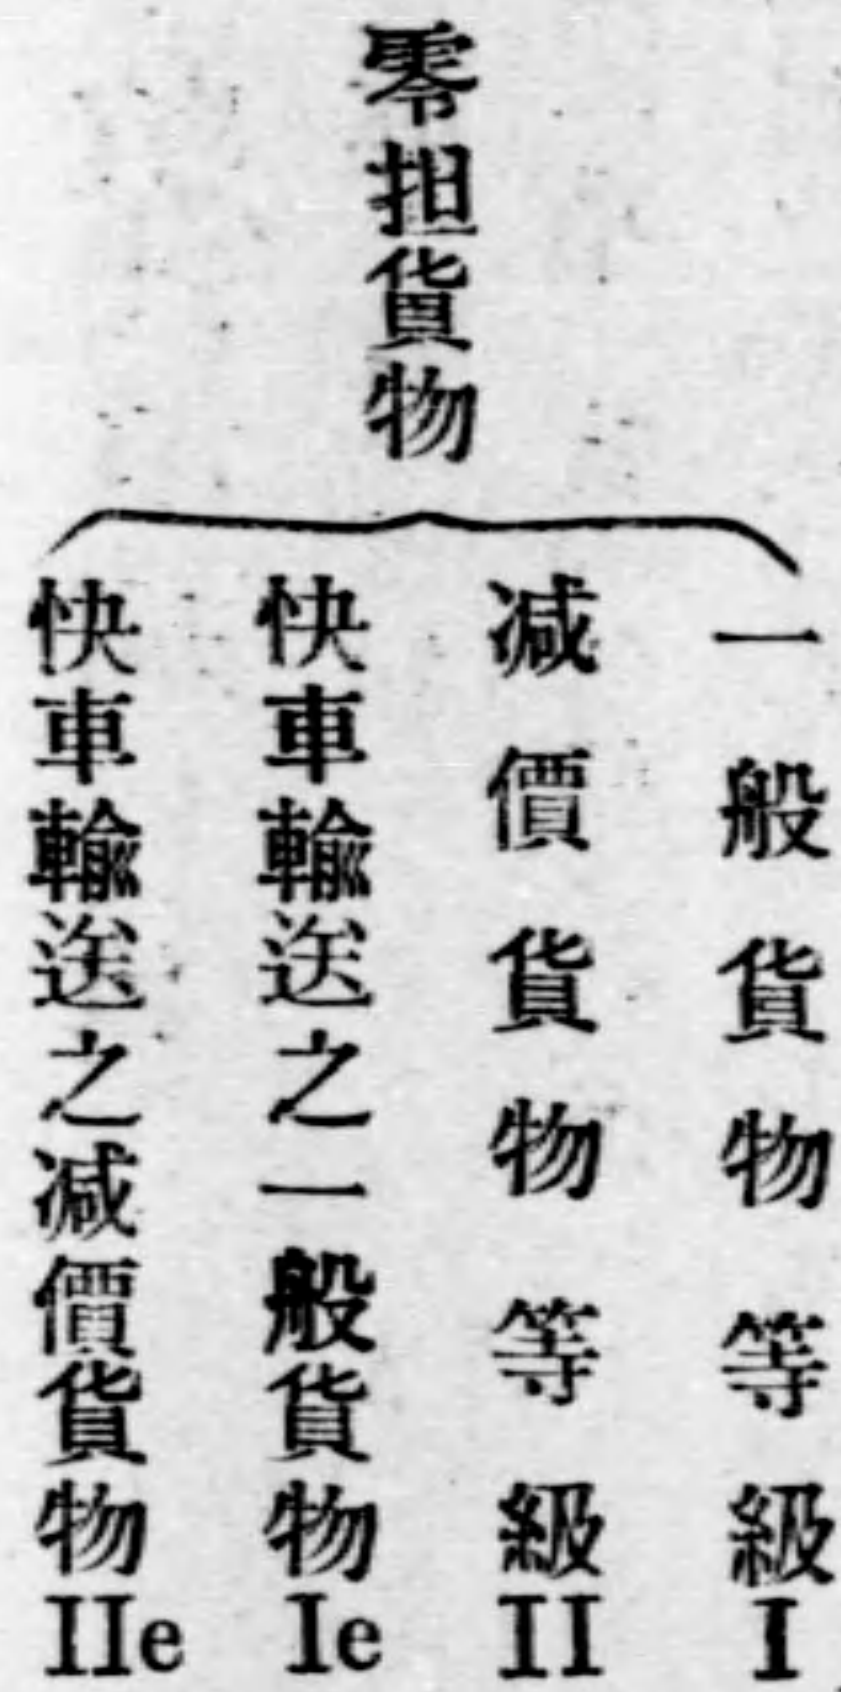 零担貨物
一般貨物等級I
减價貨物等級II
快車輸送之一般貨物Ie
快車輸送之减價貨物IIe